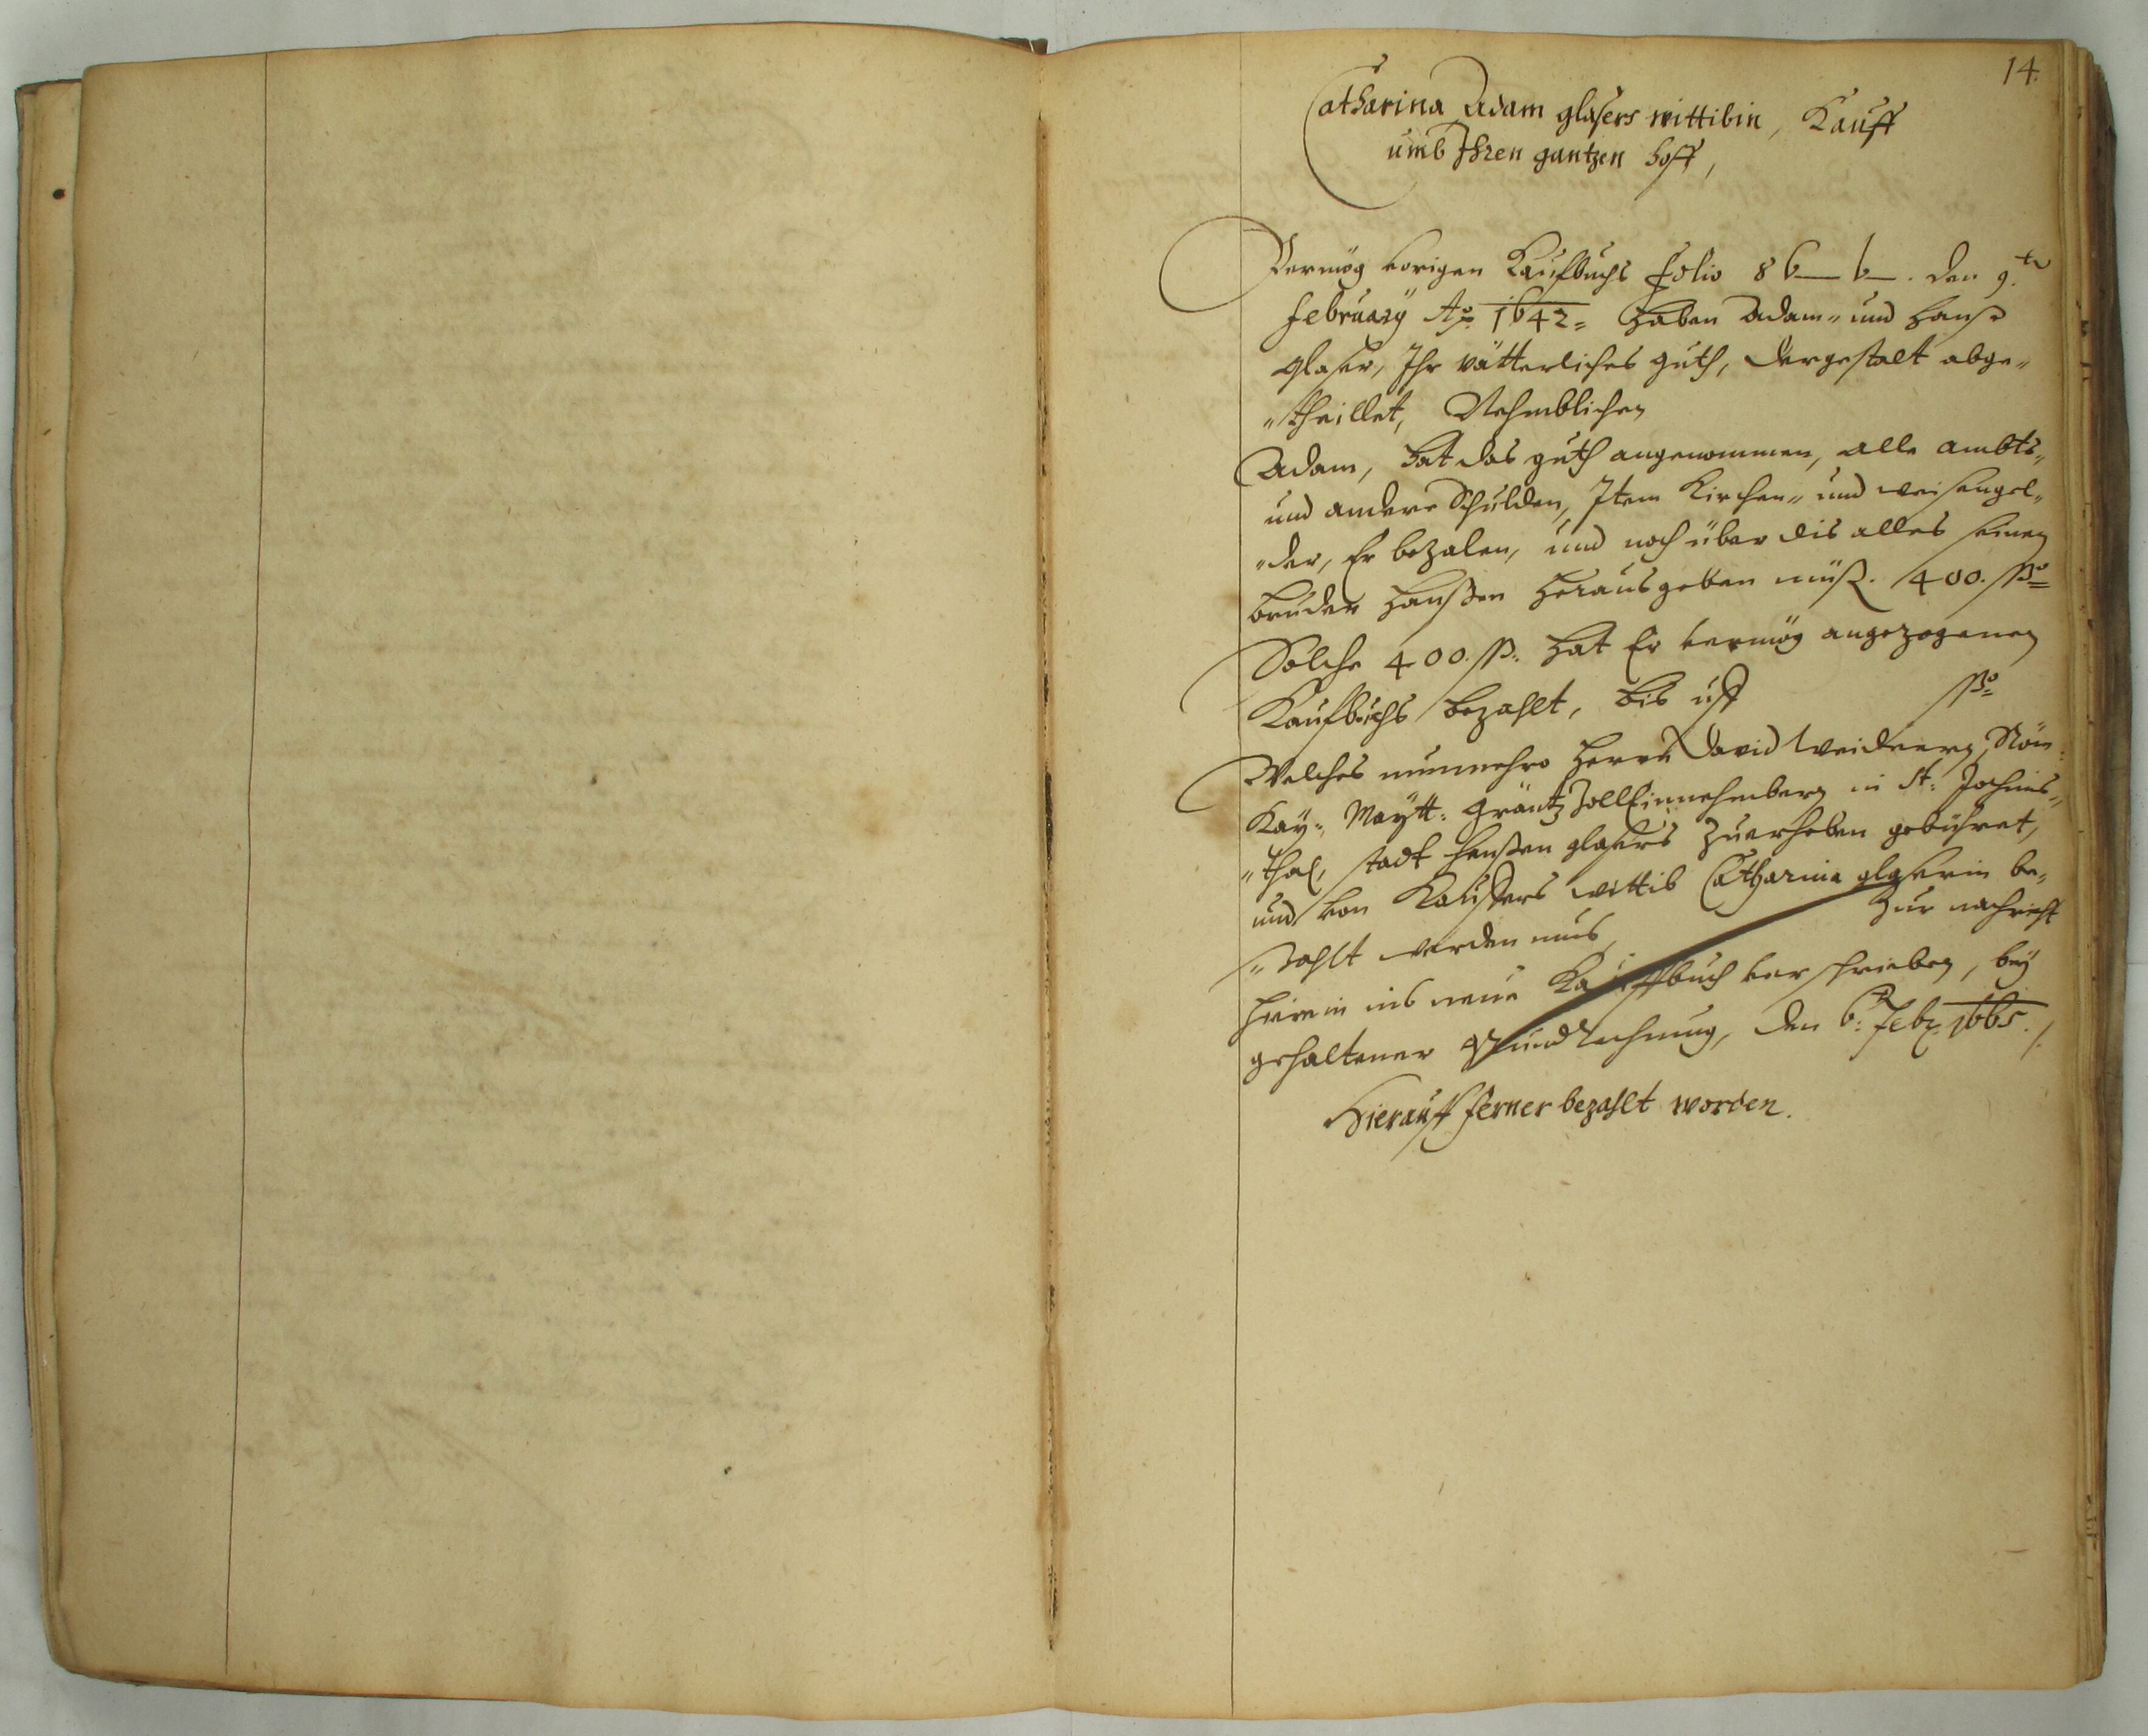 14.
Catharina Adam glasers wittibin, Kauff
umb Ihren gantzen hoff,
Vermög vorigen Kaufbuchs folio 86 b. den 9.ten
februarÿ Ao. 1642 = haben Adam = und Hanß
glaser, Ihr vätterliches guth, dergestalt abge=
=theillet, Nehmblichen
Adam, hat das guth angenommen, alle ambts=
und andere Schulden, Item Kirchen= und weisengel=
=der, Er bezalen, und noch über dis alles seinen
bruder Hanßen herausgeben müß. 400. ßo
Solche 400. ß. hat Er vermög angezogenen
Kaufbuchs bezahlt, bis uff ßo
Welches nunmehro Herrn David Weidnern, Röm:
Kaÿ: Maÿtt: Gräntz Zoll Einnehmbern in St: Jochims=
=thal, stadt hanßen glasers zuerheben gebühret,
und von Kauffers wittib Catharina glaserin be=
=zahlt werden mus, Zur nachricht
hierin ins neue Kauffbuch verschrieben, beÿ
gehaltener Grundrechnung, den 6: Febr. 1665.
Hierauff ferner bezahlt worden.